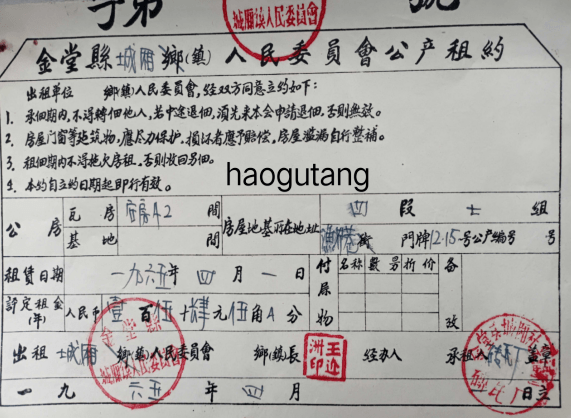 字第 號
城厢鎮人民委員會
金堂縣城厢鄉(鎮)人民委員會公产租約
出租单位 鄉(鎮)人民委員會,經双方同意立約如下:
1. 承佃期内,不得轉佃他人,若中途退佃,須先来本会申請退佃,否則無效。
2. 房屋门窗等建筑物,應尽力保护,損坏者應予賠偿,房屋滥漏自行整補。
3. 租佃期内不得拖欠房租,否則收回另佃。
4. 本約自立約日期起即行有效。
haogutang
公房 瓦房 间 房屋地基所在地址 四段 組
基地 间 街 門牌12-15号公产編号 号
租賃日期 一九六五年四月一日 付屬物 名称 數另 折价 备攷
評定租金(年) 人民币 壹百伍十肆元伍角 分
出租 城厢鄉(鎮)人民委員會 鄉(鎮)長 王迹洲印 經办人 承租人 盖章
金堂縣 城厢鎮人民委員會
一九六五年四月 日立